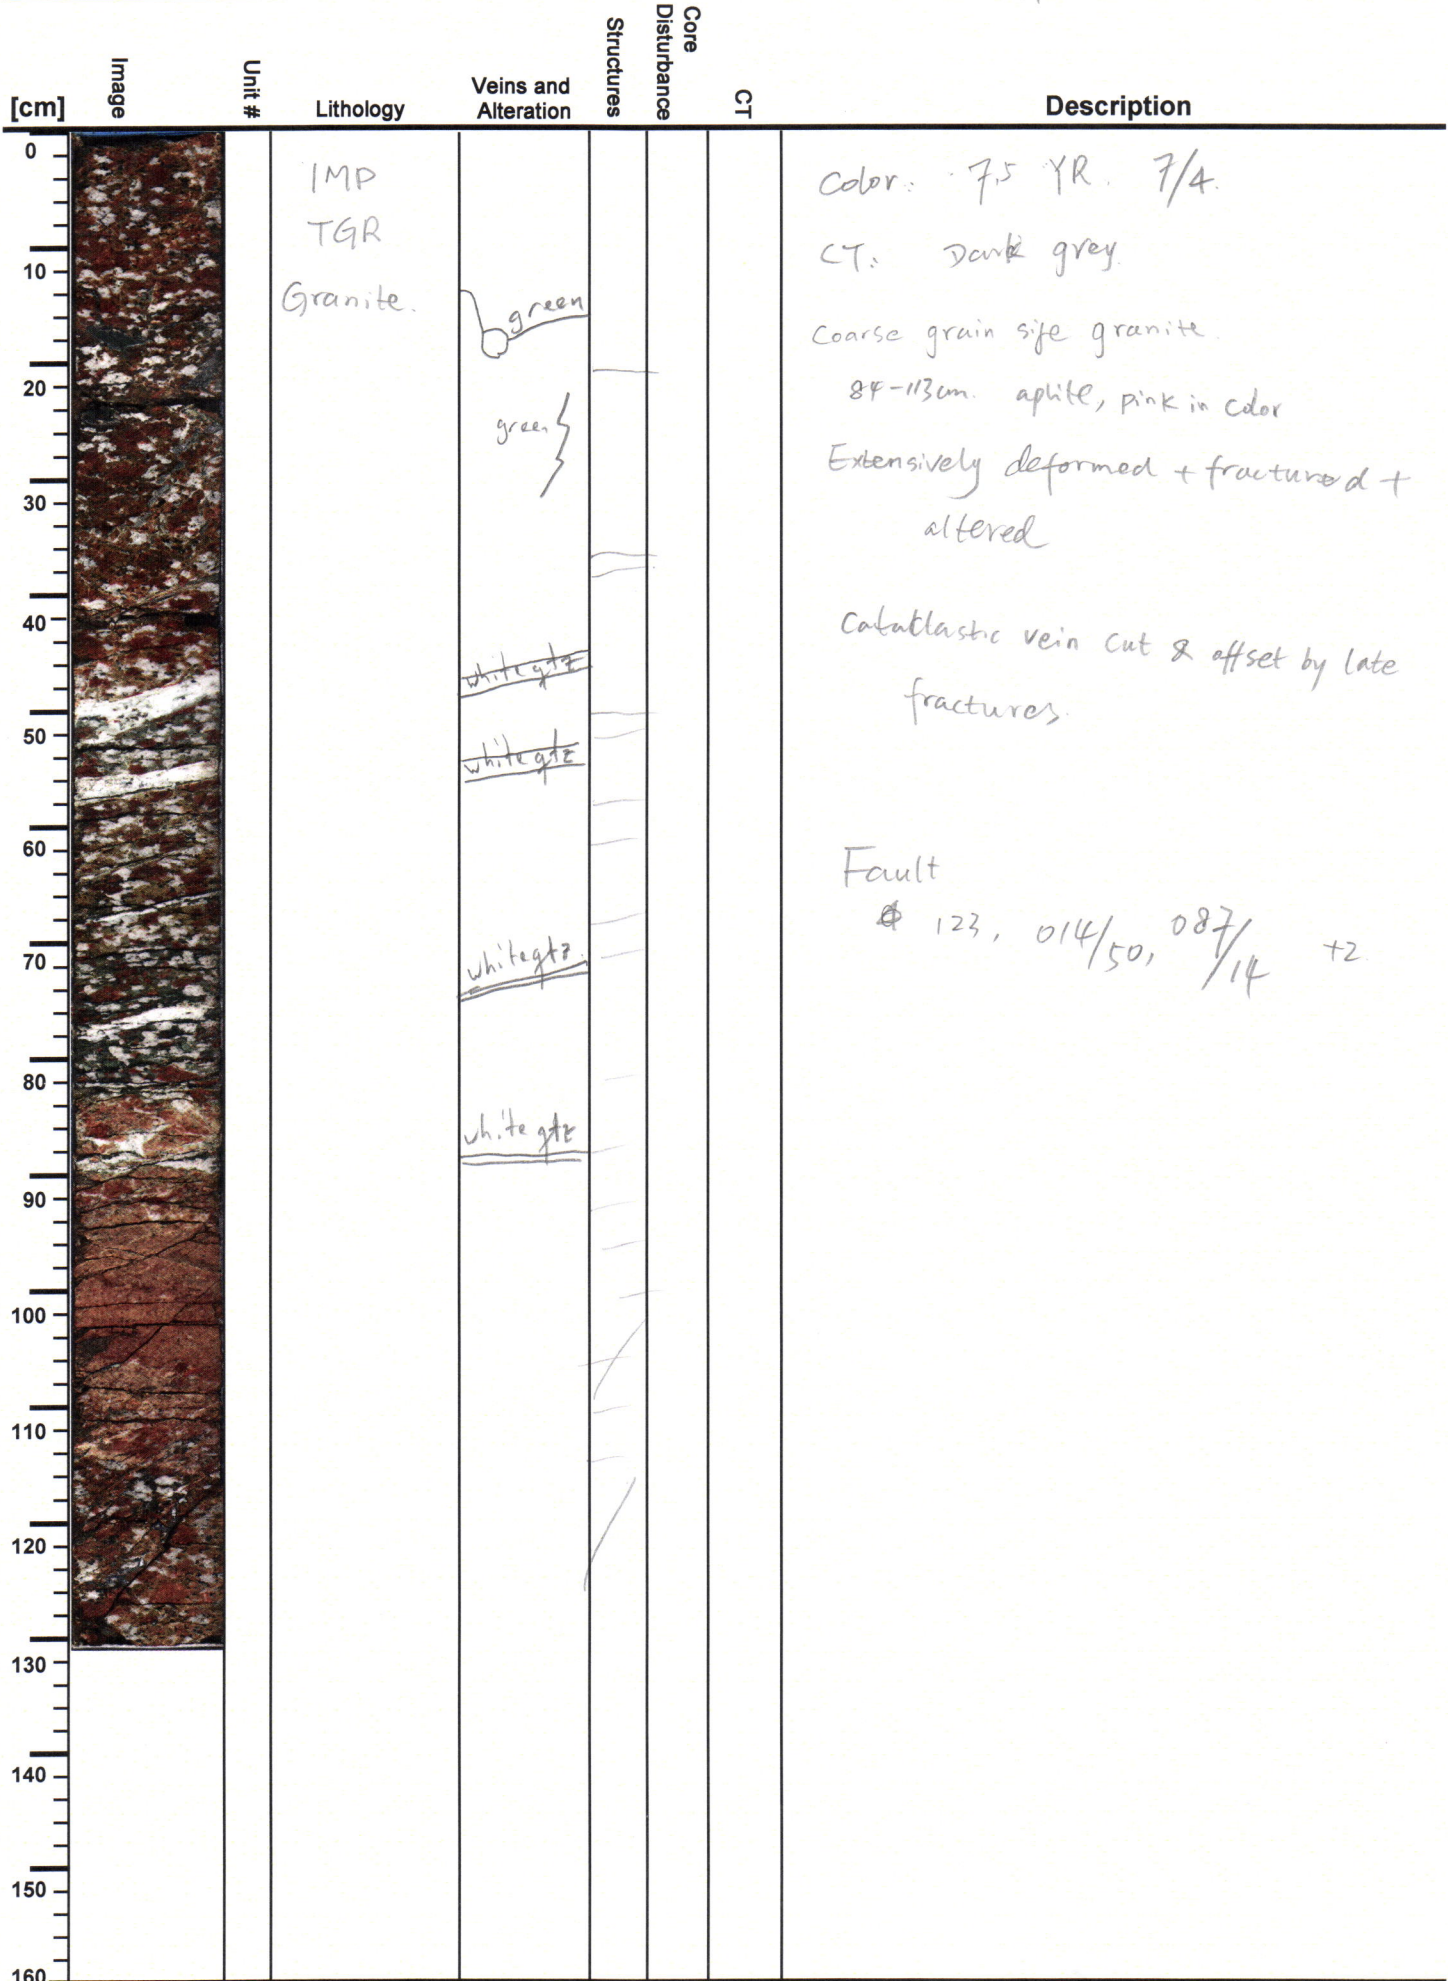 [cm]
Image
Unit #
Lithology
Veins and
Alteration
Structures
Core
Disturbance
CT
Description
0
10
20
30
40
50
60
70
80
90
100
110
120
130
140
150
160
IMP
TGR
Granite.
green
green
white qtz
white qtz
white qtz.
white qtz
Color: 7.5 YR. 7/4.
CT: Dark grey.
Coarse grain size granite.
84-113cm. aplite, pink in color
Extensively deformed + fractured +
altered
Cataclastic vein cut & offset by late
fractures.
Fault
123, 014/50, 087/14 +2